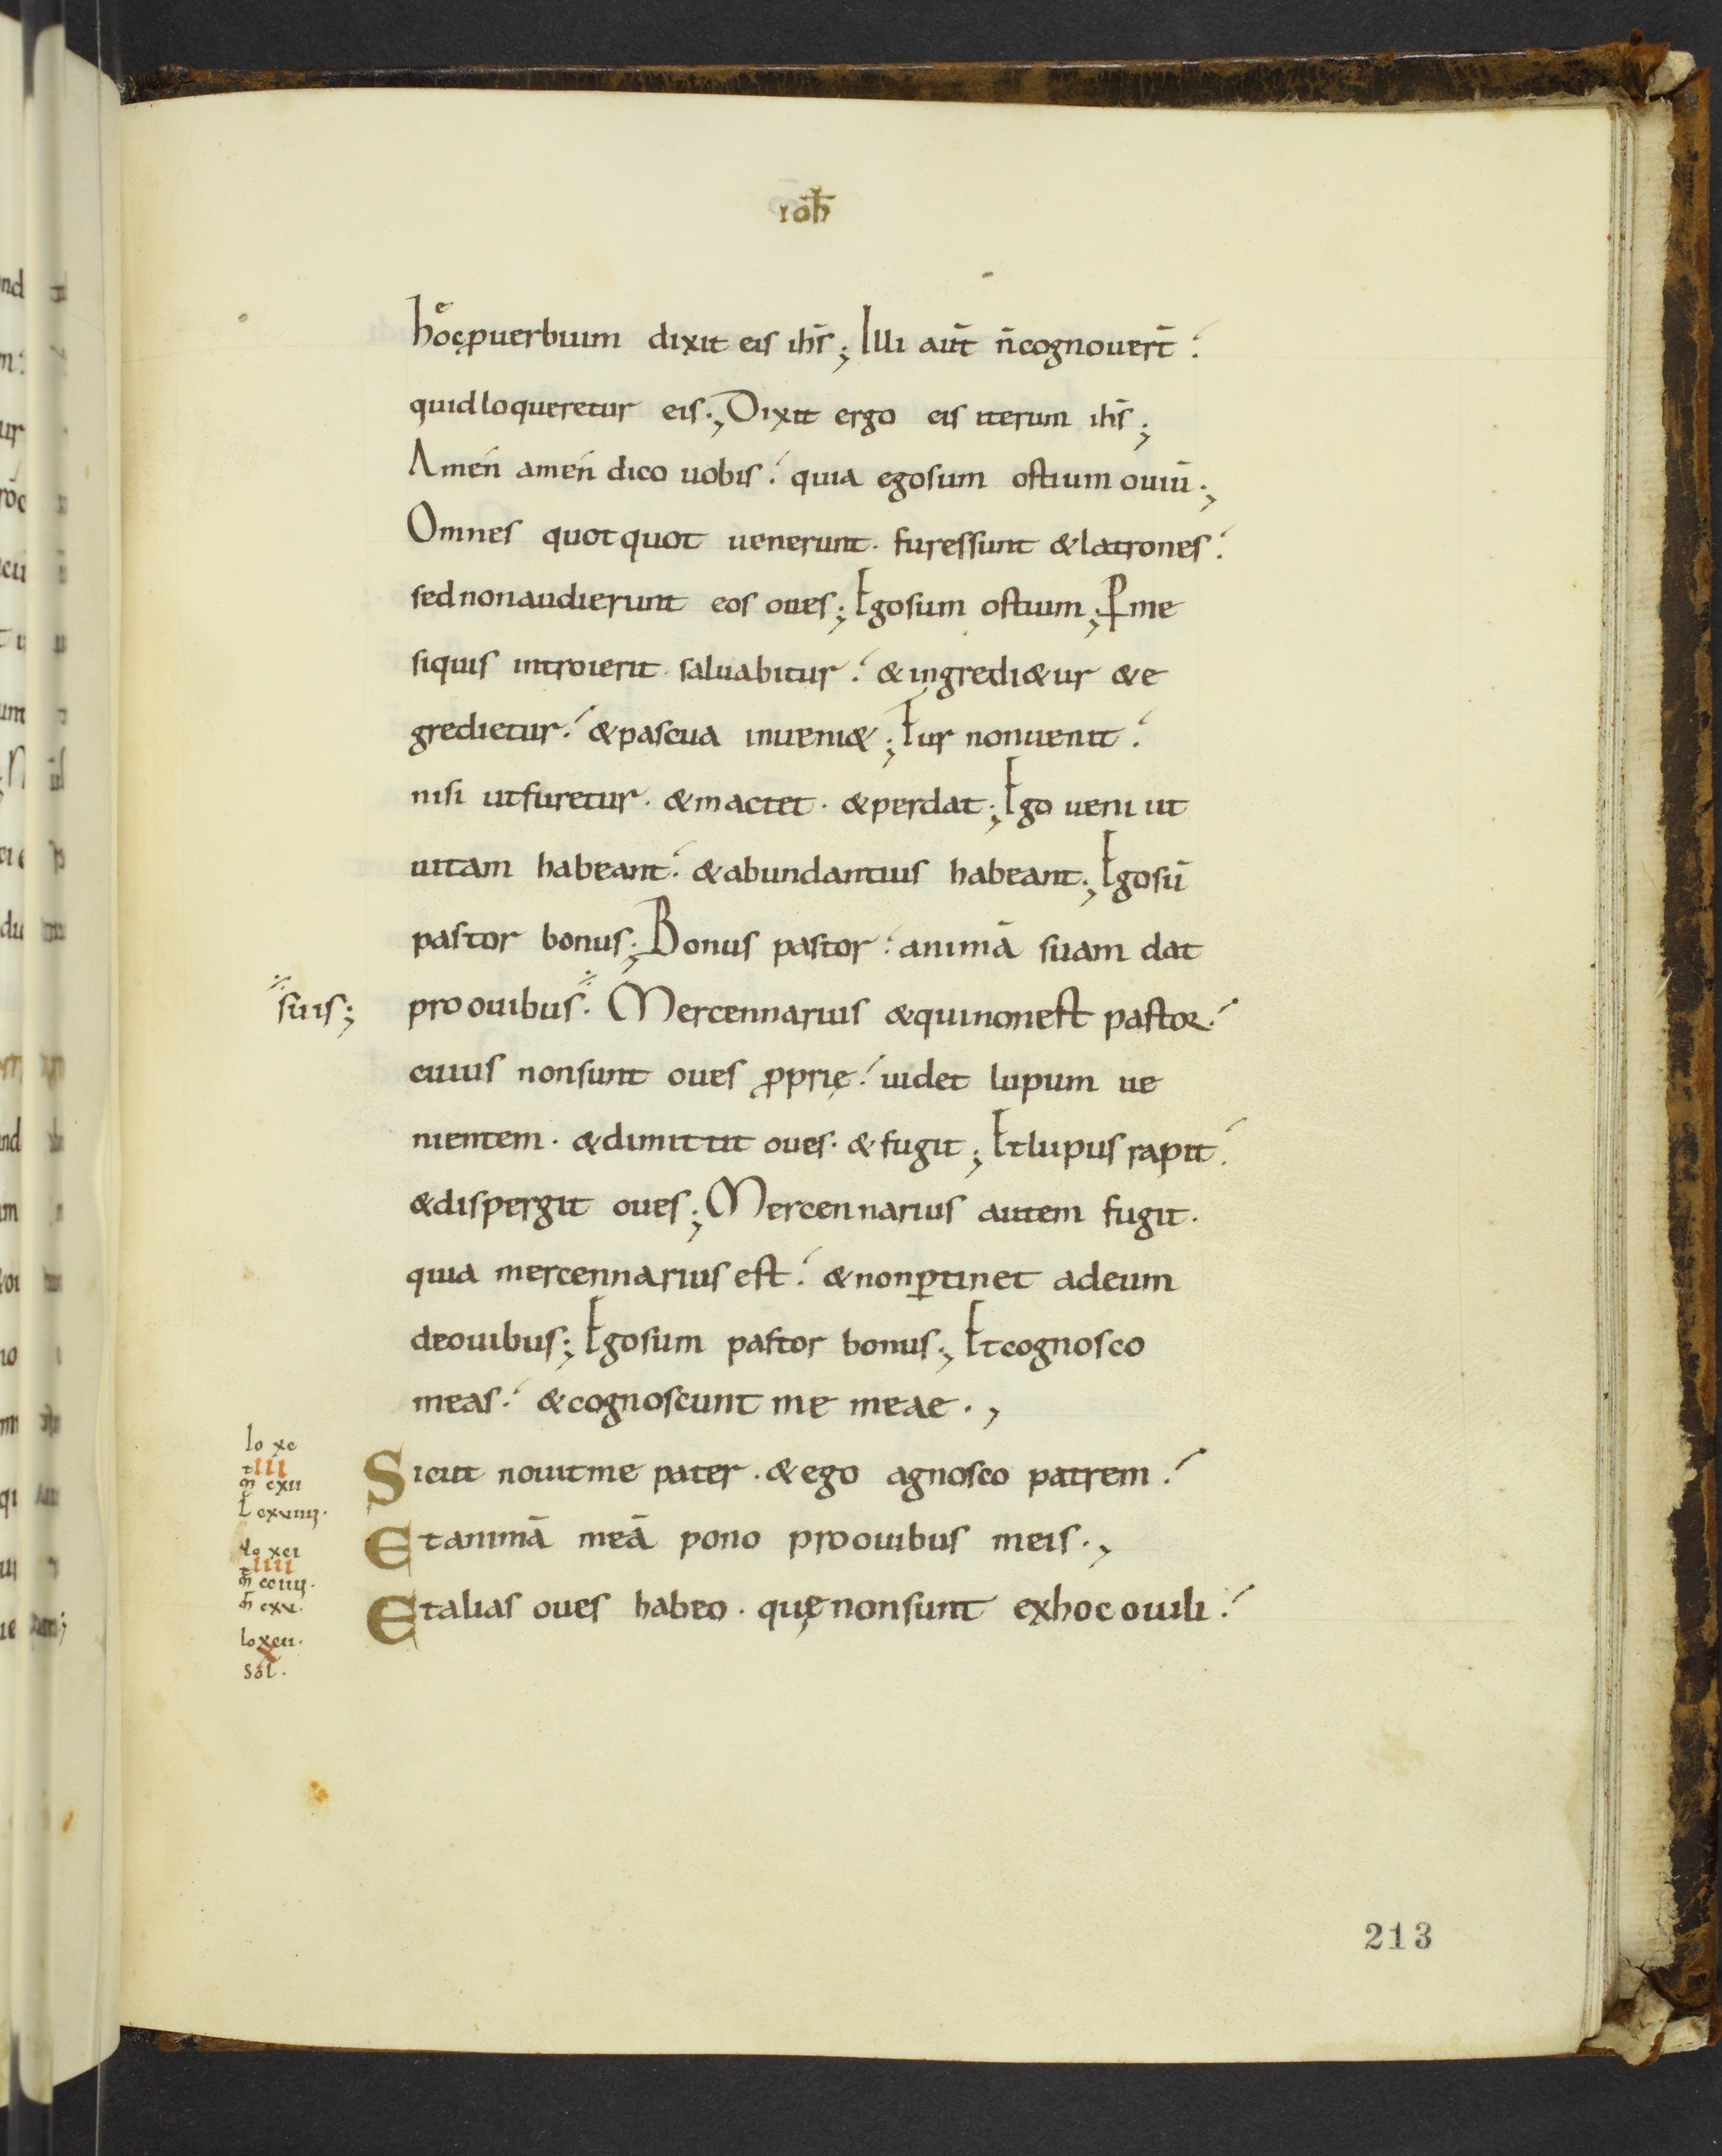 ioh̄
hoc ꝓuerbium dixit eis ih̄s; Illi aut̄ n̄ cognouer̄t.
quid loqueretur eis; Dixit ergo eis iterum ih̄s;
Amen amen dico uobis. quia ego sum ostium ouiū;
Omnes quotquot uenerunt. fures sunt & latrones.
sed non audierunt eos oues; Ego sum ostium; ꝑ me
si quis introierit. saluabitur. & ingredi&ur & e
gredietur. & pascua inueni&; Fur non uenit.
nisi ut furetur. & mactet. & perdat; Ego ueni ut
uitam habeant. & abundantius habeant; Ego sū
pastor bonus; Bonus pastor. animā suam dat
suis;
pro ouibus. Mercennarius & qui non est pastor.
cuius non sunt oues ꝓprię. uidet lupum ue
nientem. & dimittit oues. & fugit; Et lupus rapit.
& dispergit oues; Mercennarius autem fugit.
quia mercennarius est. & non ꝑtinet ad eum
de ouibus; Ego sum pastor bonus; Et cognosco
meas. & cognoscunt me meae.,
Io xc
III
m̄ cxii
L cxuiiii.
Sicut nouit me pater. & ego agnosco patrem.
Io xci
IIII
Et animā meā pono pro ouibus meis.,
Io xcii.
X
sol.
Et alias oues habeo. quę non sunt ex hoc ouili.
213